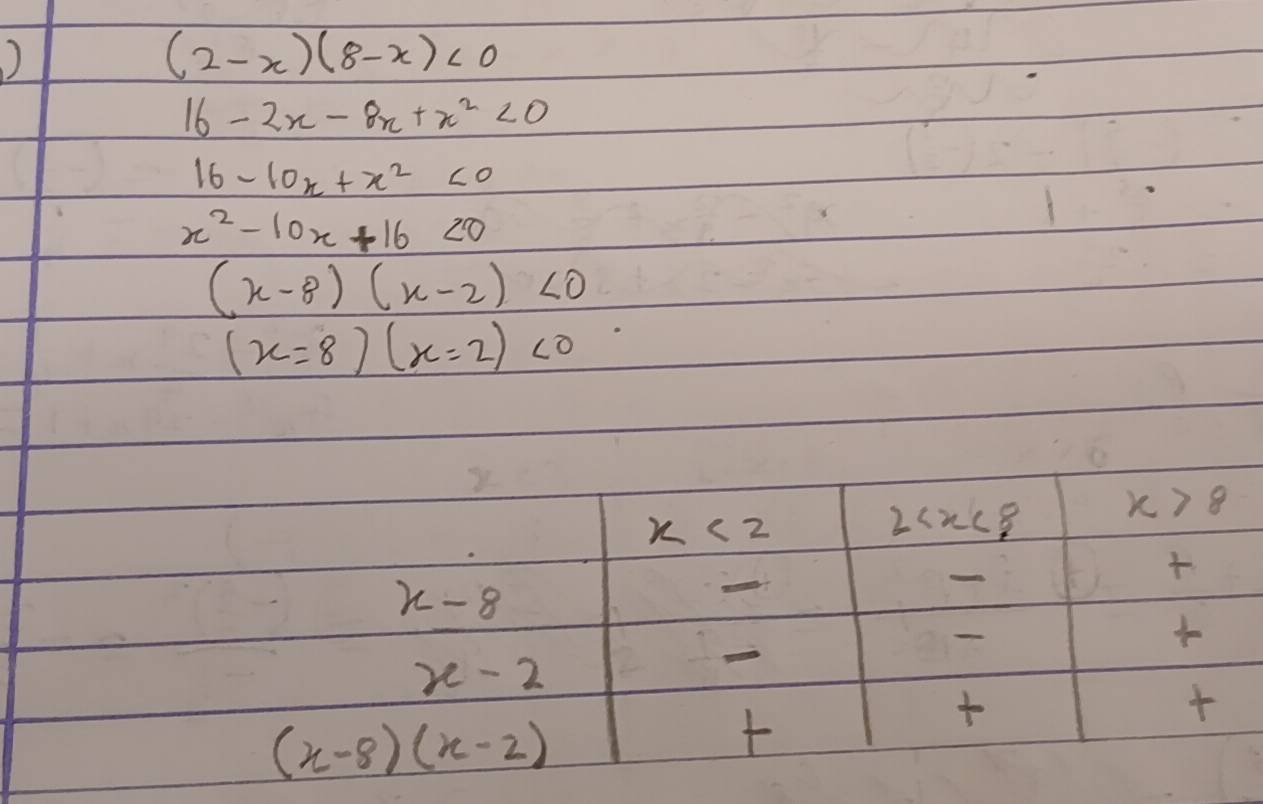 )
(2-x)(8-x)<0
16-2x-8x+x²<0
16-10x+x²<0
x²-10x+16<0
(x-8)(x-2)<0
(x=8)(x=2)<0
x<2 2<x<8 x>8
x-8 - - +
x-2 - - +
(x-8)(x-2) + + +